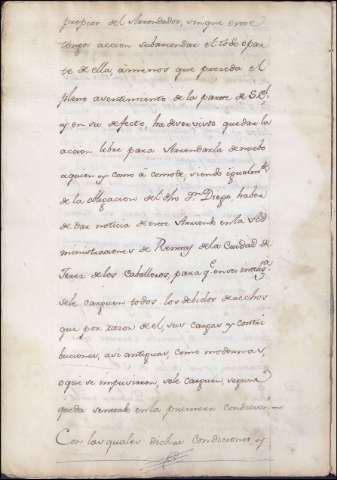 propios del Arrendador, sin que este
tenga accion subarrendar el todo o par
te de ella, a menos que preceda el
pleno asentimiento de la parte de S.E.ª
y en su defecto, ha de ser visto quedar la
accion libre para Arrendarla de nuebo
a quien y como à comode, siendo igualm.te
de la obligacion del dho D.n Diego, haber
de dar noticia de este Arriendo en las Ad
ministraciones de Rentas de la Ciudad de
Xerez de los Caballeros, para q.e en su
se le carguen todos los debidos derechos
que por razon de el, sus cargas y contri
buciones, asi antiguas, como modernas,
o que se impusieren, se le carguen, segun
queda sentado en la primera condicion =
Con las quales dichas condiciones, y